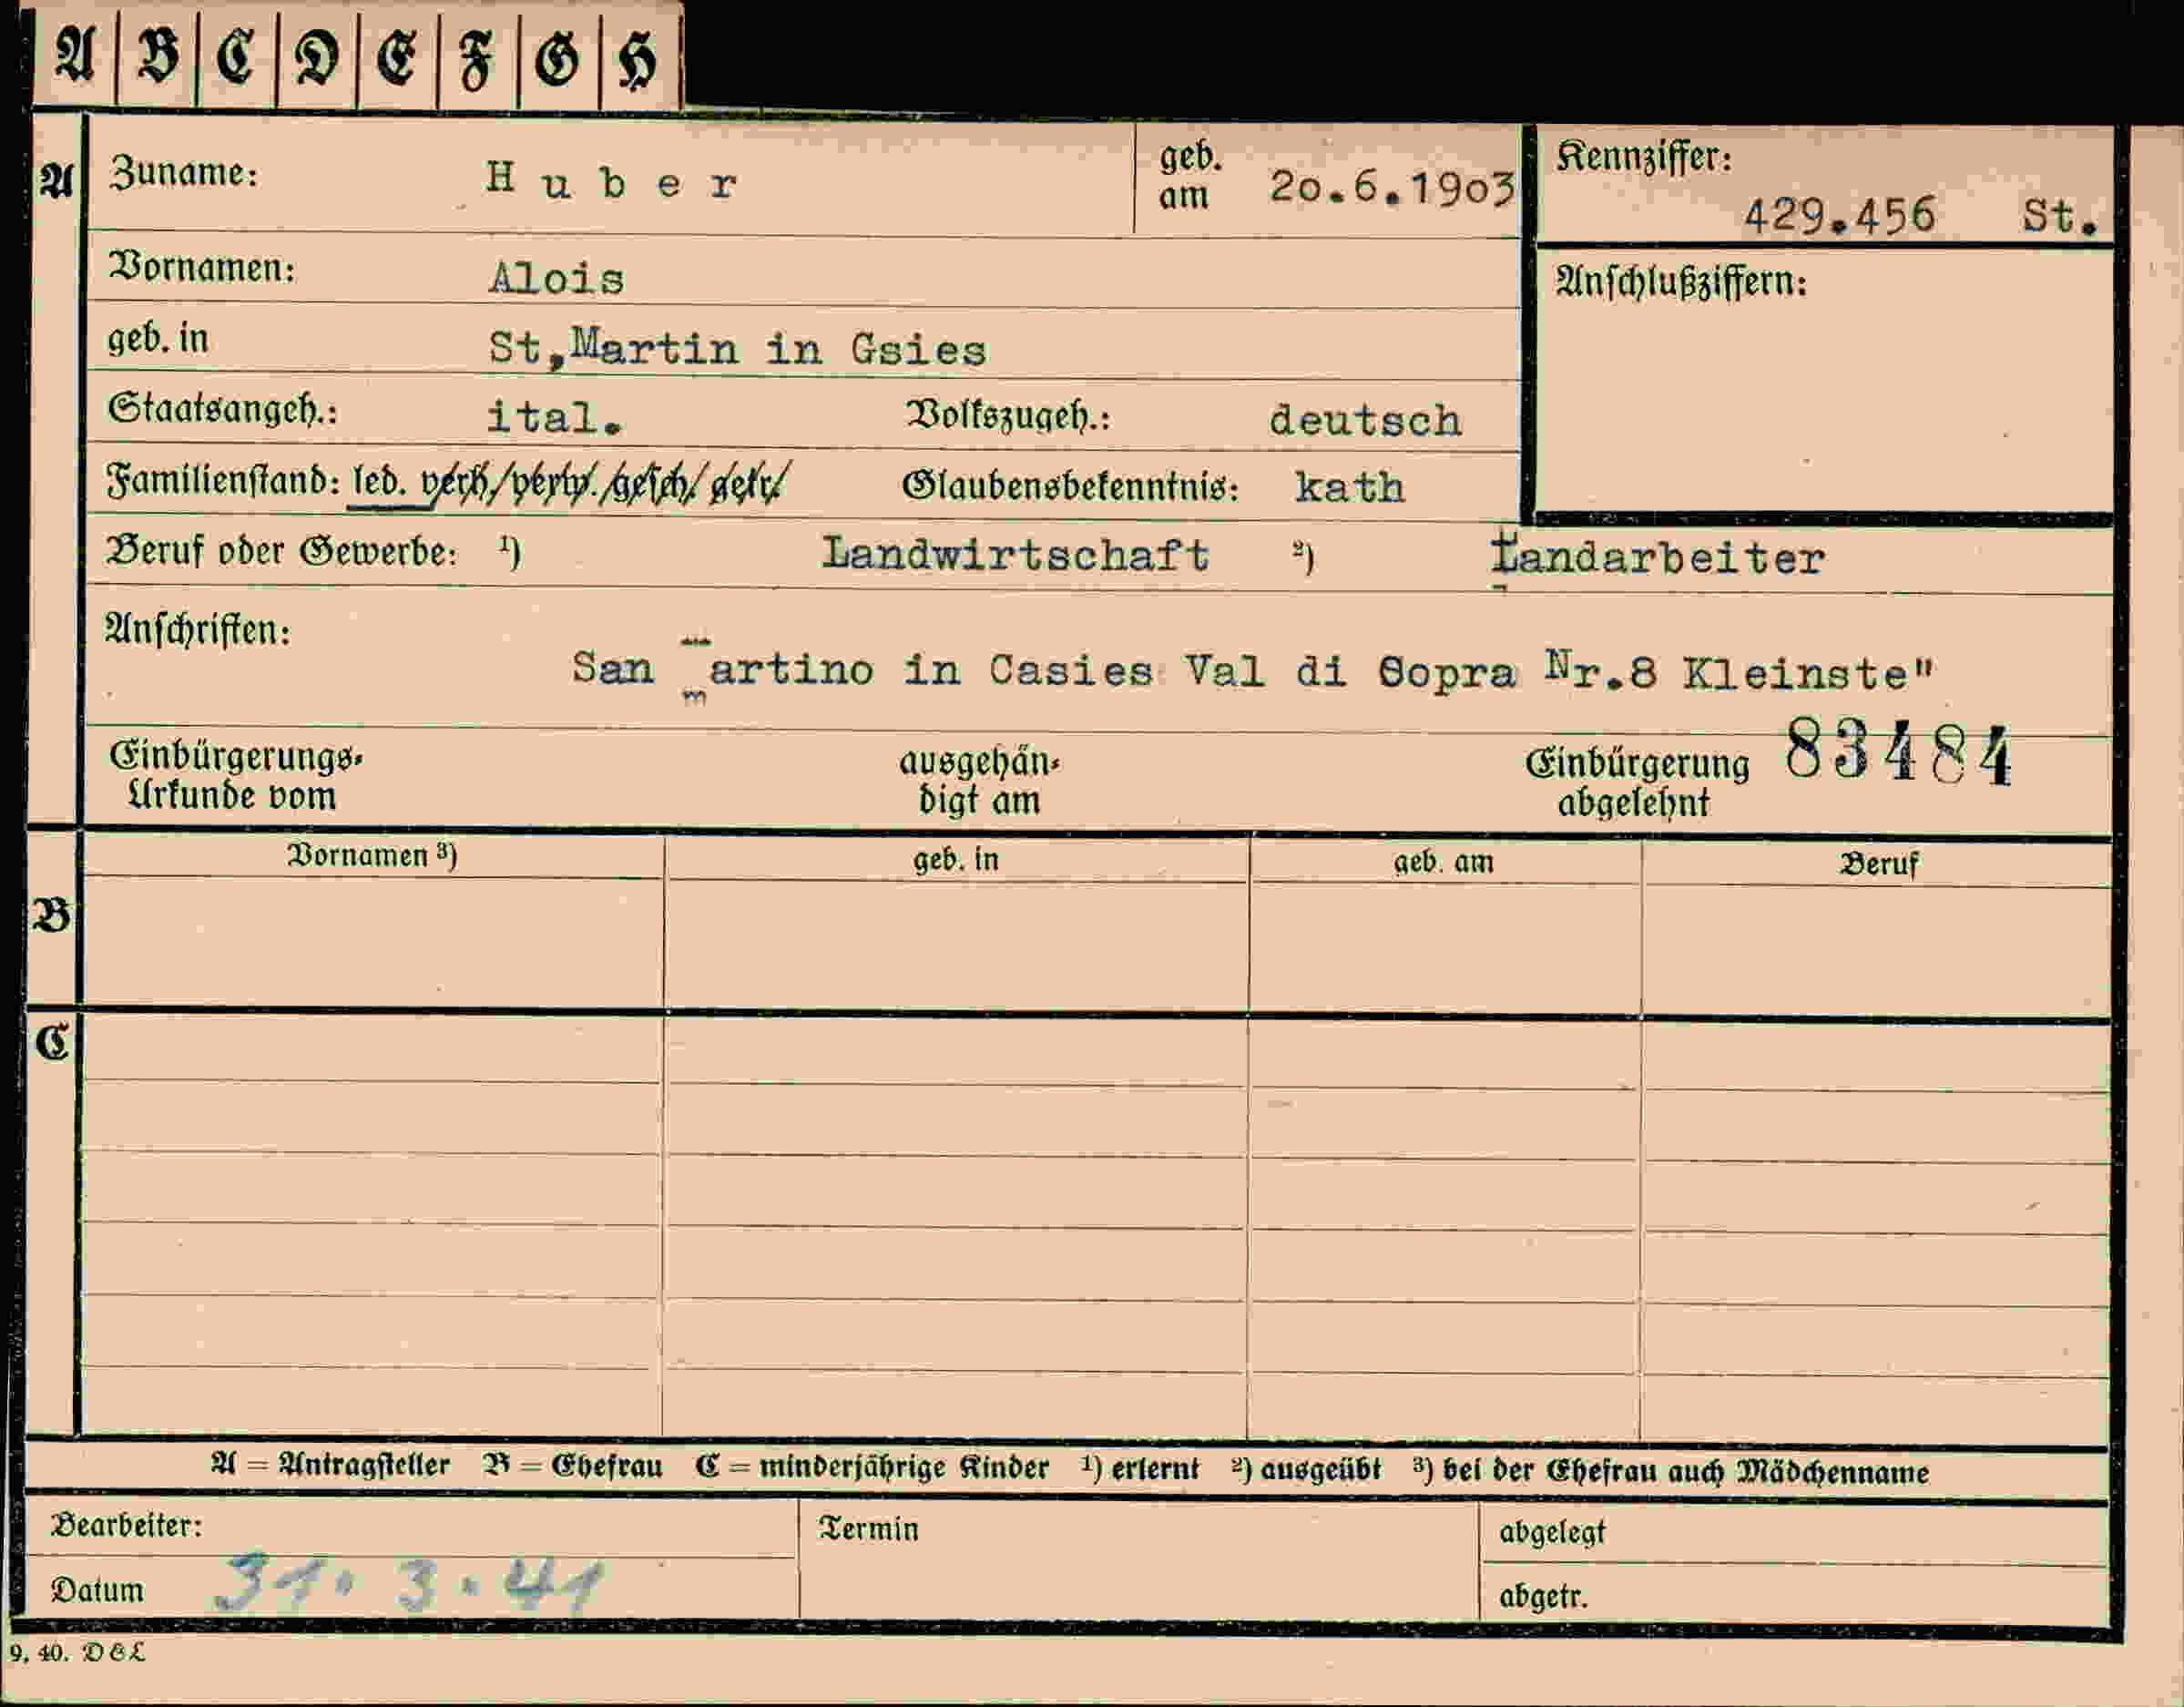 A B C D E F G H
A Zuname: Huber geb. am 20.6.1903 Kennziffer: 429.456 St.
Vornamen: Alois Anschlußziffern:
geb. in St,Martin in Gsies
Staatsangeh.: ital. Volkszugeh.: deutsch
Familienstand: led. verh./verw./gesch/ getr/ Glaubensbekenntnis: kath
Beruf oder Gewerbe: ¹) Landwirtschaft ²) Landarbeiter
Anschriften:
San martino in Casies Val di Sopra Nr.8 Kleinste"
Einbürgerungs- ausgehän- Einbürgerung 83484
Urkunde vom digt am abgelehnt
Vornamen ³) geb. in geb. am Beruf
B
C
A = Antragsteller B = Ehefrau C = minderjährige Kinder ¹) erlernt ²) ausgeübt ³) bei der Ehefrau auch Mädchenname
Bearbeiter: Termin abgelegt
Datum 31. 3. 41 abgetr.
9. 40. DEL